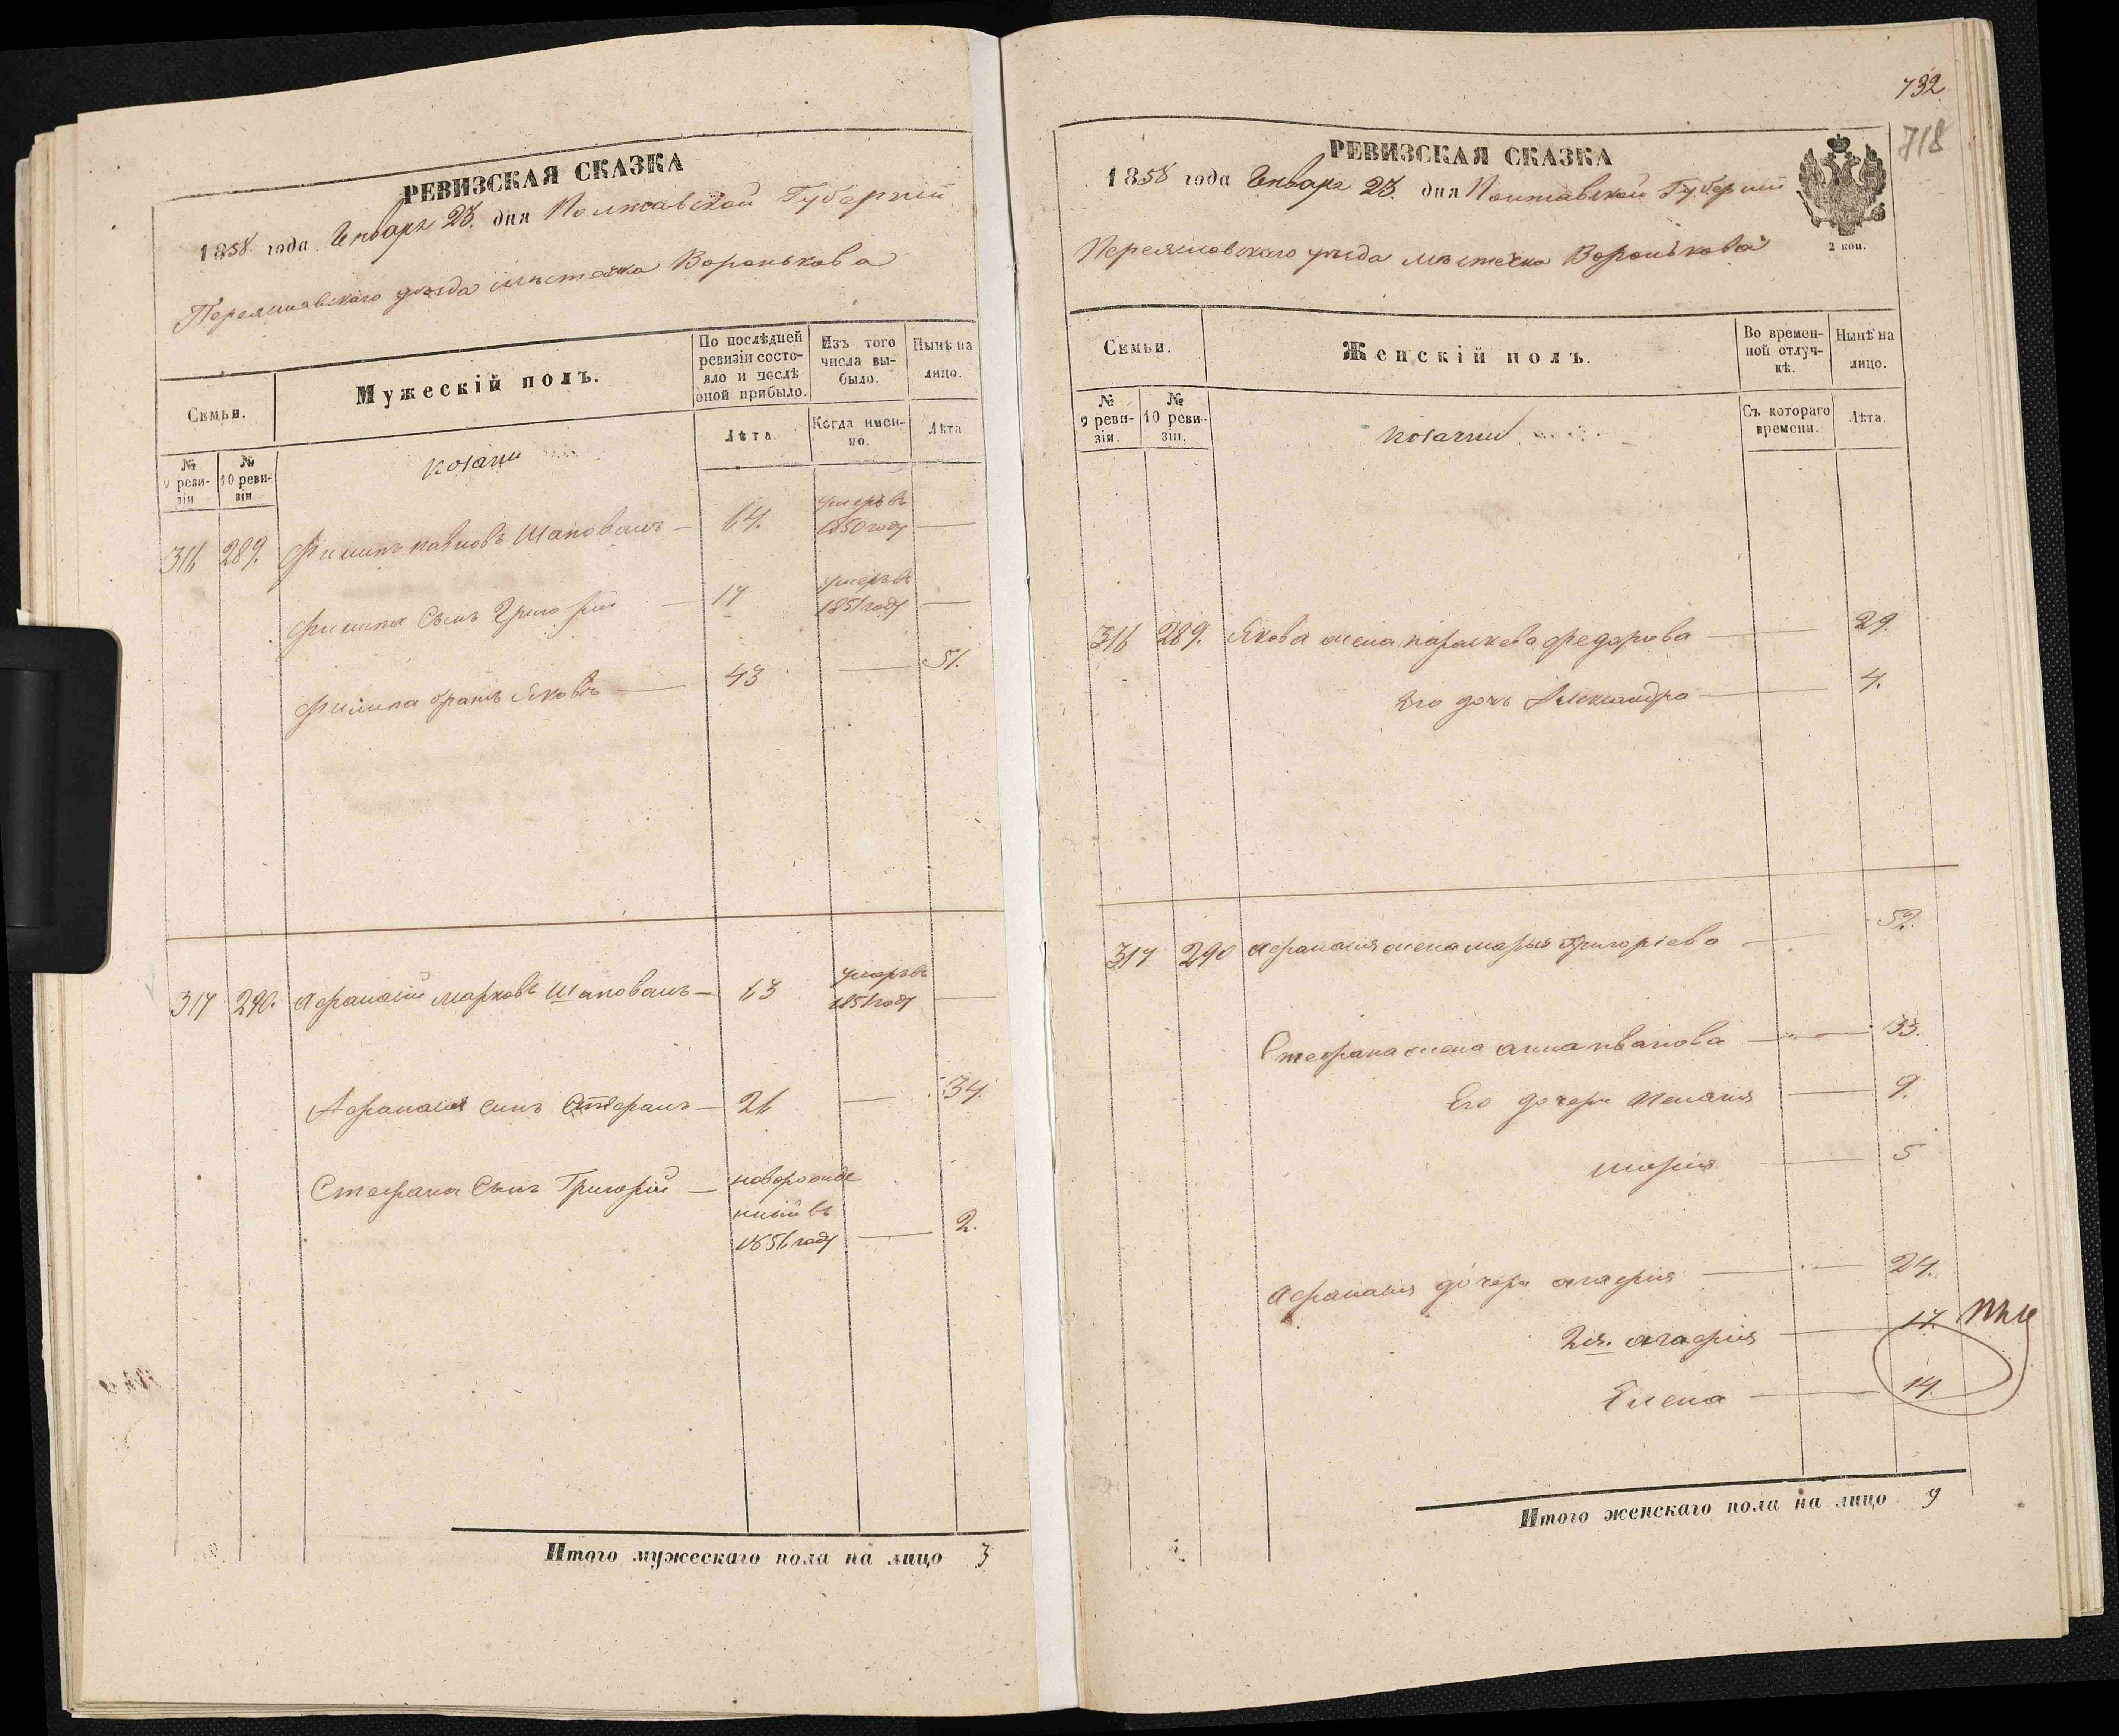 РЕВИЗСКАЯ СКАЗКА
1858 года Генваря 23. дня Полтавской Губерніи
Переяславскаго уѣзда мѣстечка Воронькова
Семьи.
Мужескій полъ.
По послѣдней ревизіи состояло и послѣ оной прибыло.
Изъ того числа выбыло.
Нынѣ на лицо.
№ 9 ревизіи
№ 10 ревизіи
козаки
Лѣта.
Когда именно.
Лѣта
316 289. Филипъ Павловъ Шаповалъ — 64. умеръ въ 1850 году —
Филипа Сынъ Григорій — 17 умеръ въ 1851 году —
Филипа братъ Яковъ — 43 — 51.
317 290. Афанасій Марковъ Шаповалъ — 63 умеръ въ 1851 году —
Афанасія сынъ Стефанъ — 26 — 34.
Стефана Сынъ Григорій — новорожде
ный въ
1856 году — 2.
Итого мужескаго пола на лицо 3
732
718
РЕВИЗСКАЯ СКАЗКА
1858 года Генваря 23. дня Полтавской Губерніи
2 коп.
Переяславскаго уѣзда мѣстечка Воронькова
Семьи.
Женскій полъ.
Во временной отлучкѣ.
Нынѣ на лицо.
№ 9 ревизіи.
№ 10 ревизіи.
козачки
Съ котораго времени.
Лѣта.
316 289. Якова жена Параскева Федорова — 29.
Его дочь Александра — 4.
317 290 Афанасія жена Марья Григоріева — 52.
Стефана жена Анна Иванова — 33.
Его дочери Пелагія — 9.
Марія — 5
Афанасія дочери Агафія — 24.
2я. Агафія — 17.
Елена — 14.
Итого женскаго пола на лицо 9